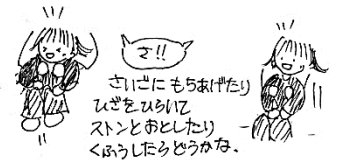 さ!!
さいごに もちあげたり
ひざを、ひらいて
ストンとおとしたり
くふうしたらどうかな。